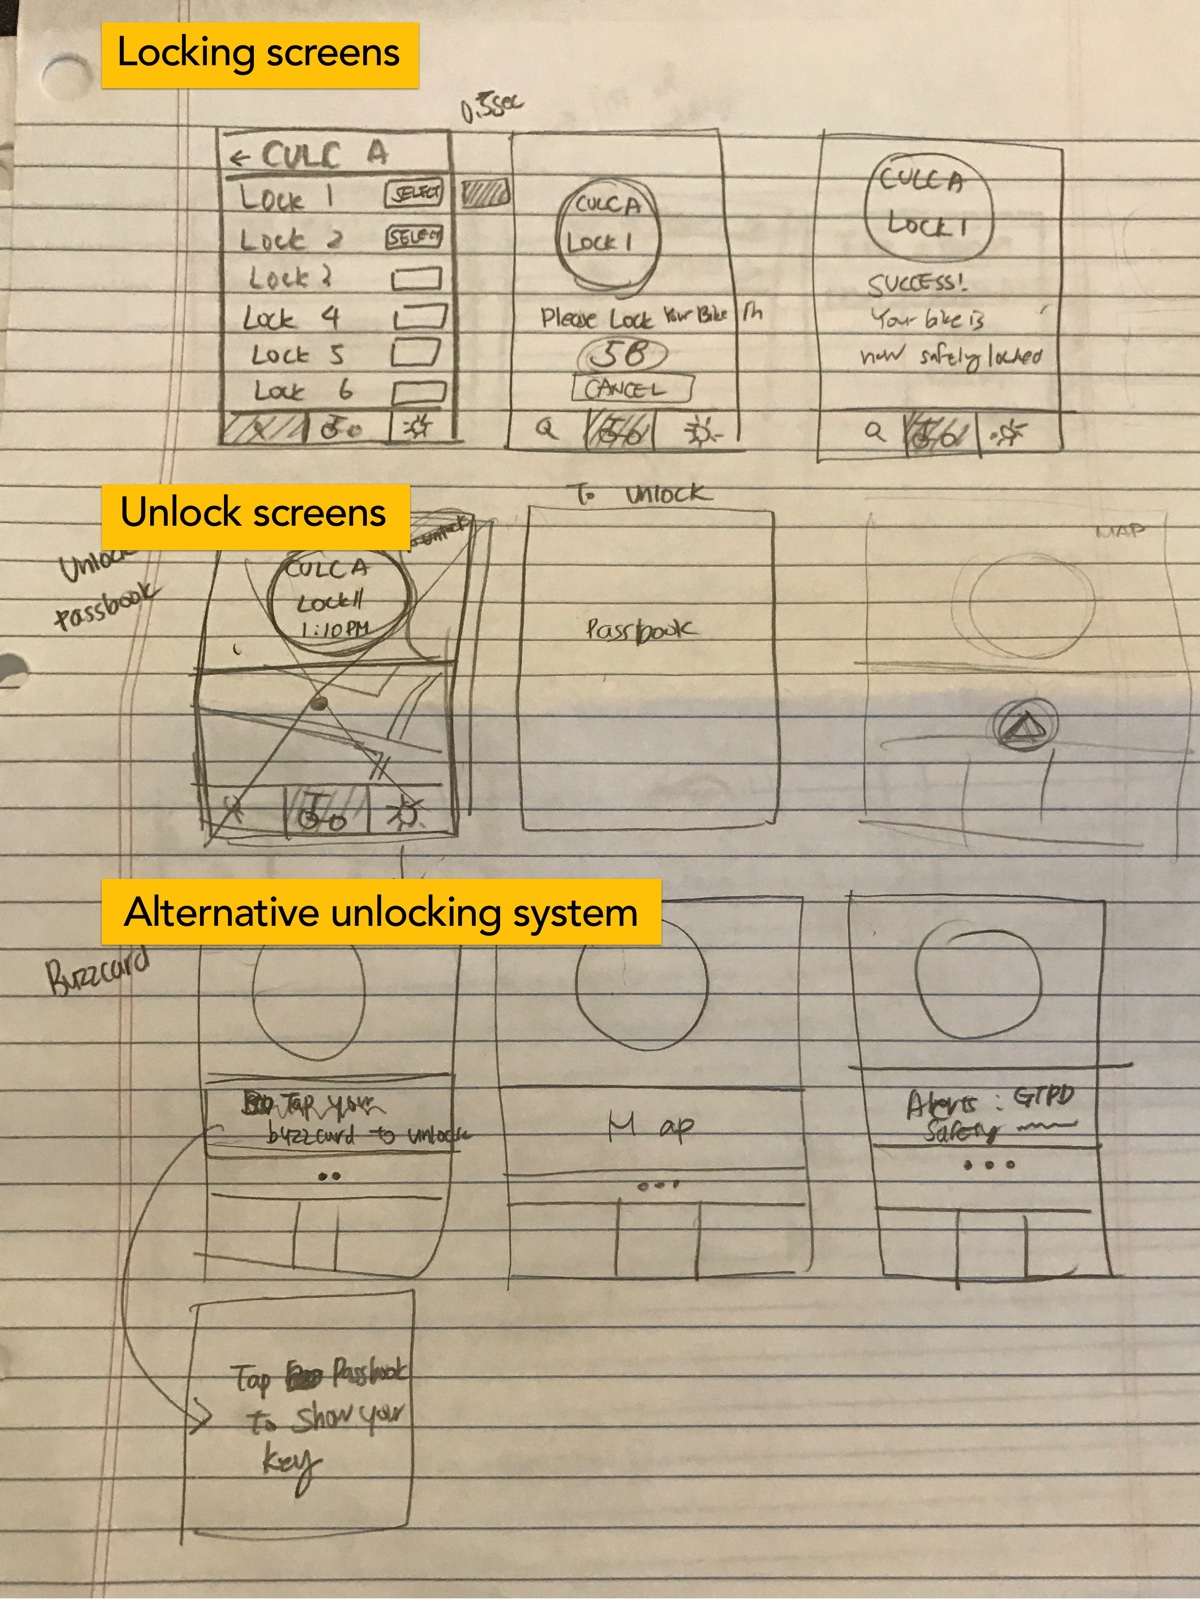 Locking screens
0.5sec
← CULC A
Lock 1 SELECT
Lock 2 SELECT
Lock 3
Lock 4
Lock 5
Lock 6
CULC A
Lock 1
Please Lock Your Bike In
58
CANCEL
CULC A
Lock 1
SUCCESS!
Your bike is
now safely locked
Unlock screens
Unlock
Passbook
CULC A
Lock 11
1:10PM
To unlock
Passbook
MAP
Alternative unlocking system
Buzzcard
Tap your
buzzcard to unlock
Map
Alerts: GTPD
Safety
Tap Passbook
to show your
key